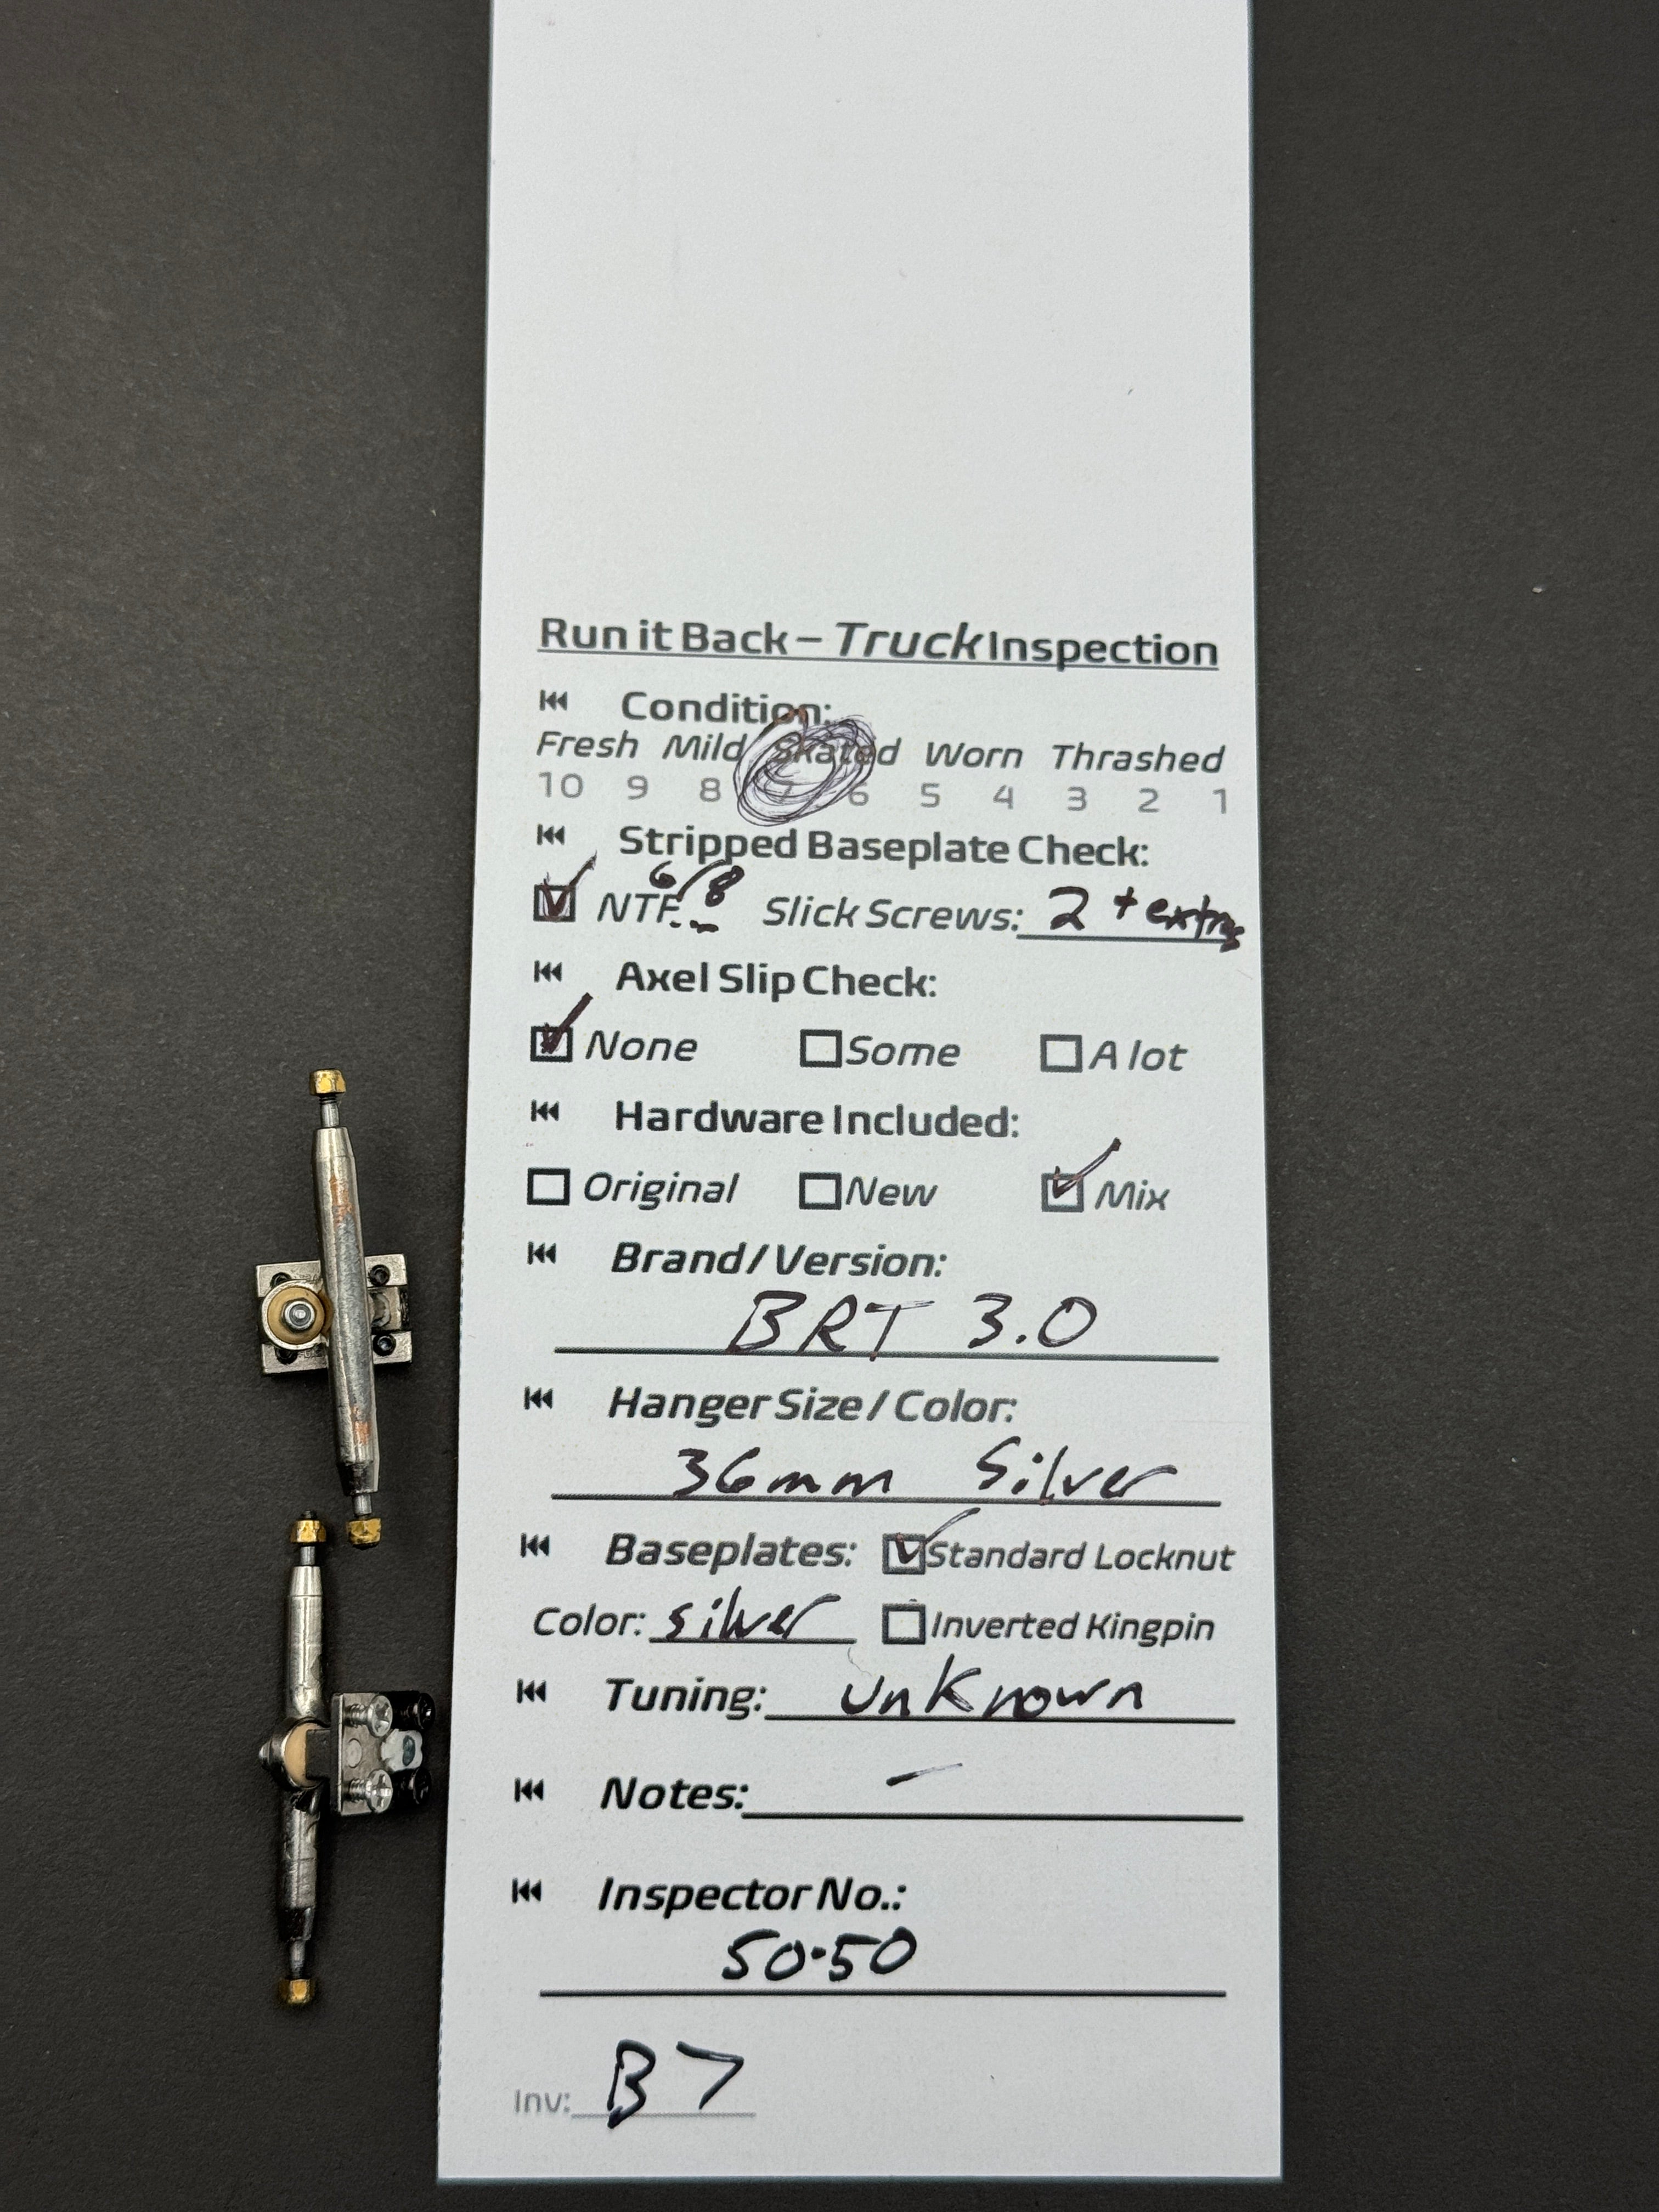 Run it Back – Truck Inspection
Condition:
Fresh Mild Skated Worn Thrashed
10 9 8 7 6 5 4 3 2 1
Stripped Baseplate Check:
NTF 6/8 Slick Screws: 2 + extras
Axel Slip Check:
None Some A lot
Hardware Included:
Original New Mix
Brand/Version:
BRT 3.0
Hanger Size / Color:
36mm Silver
Baseplates: Standard Locknut
Color: silver Inverted Kingpin
Tuning: unknown
Notes: –
Inspector No.:
50·50
Inv: B7